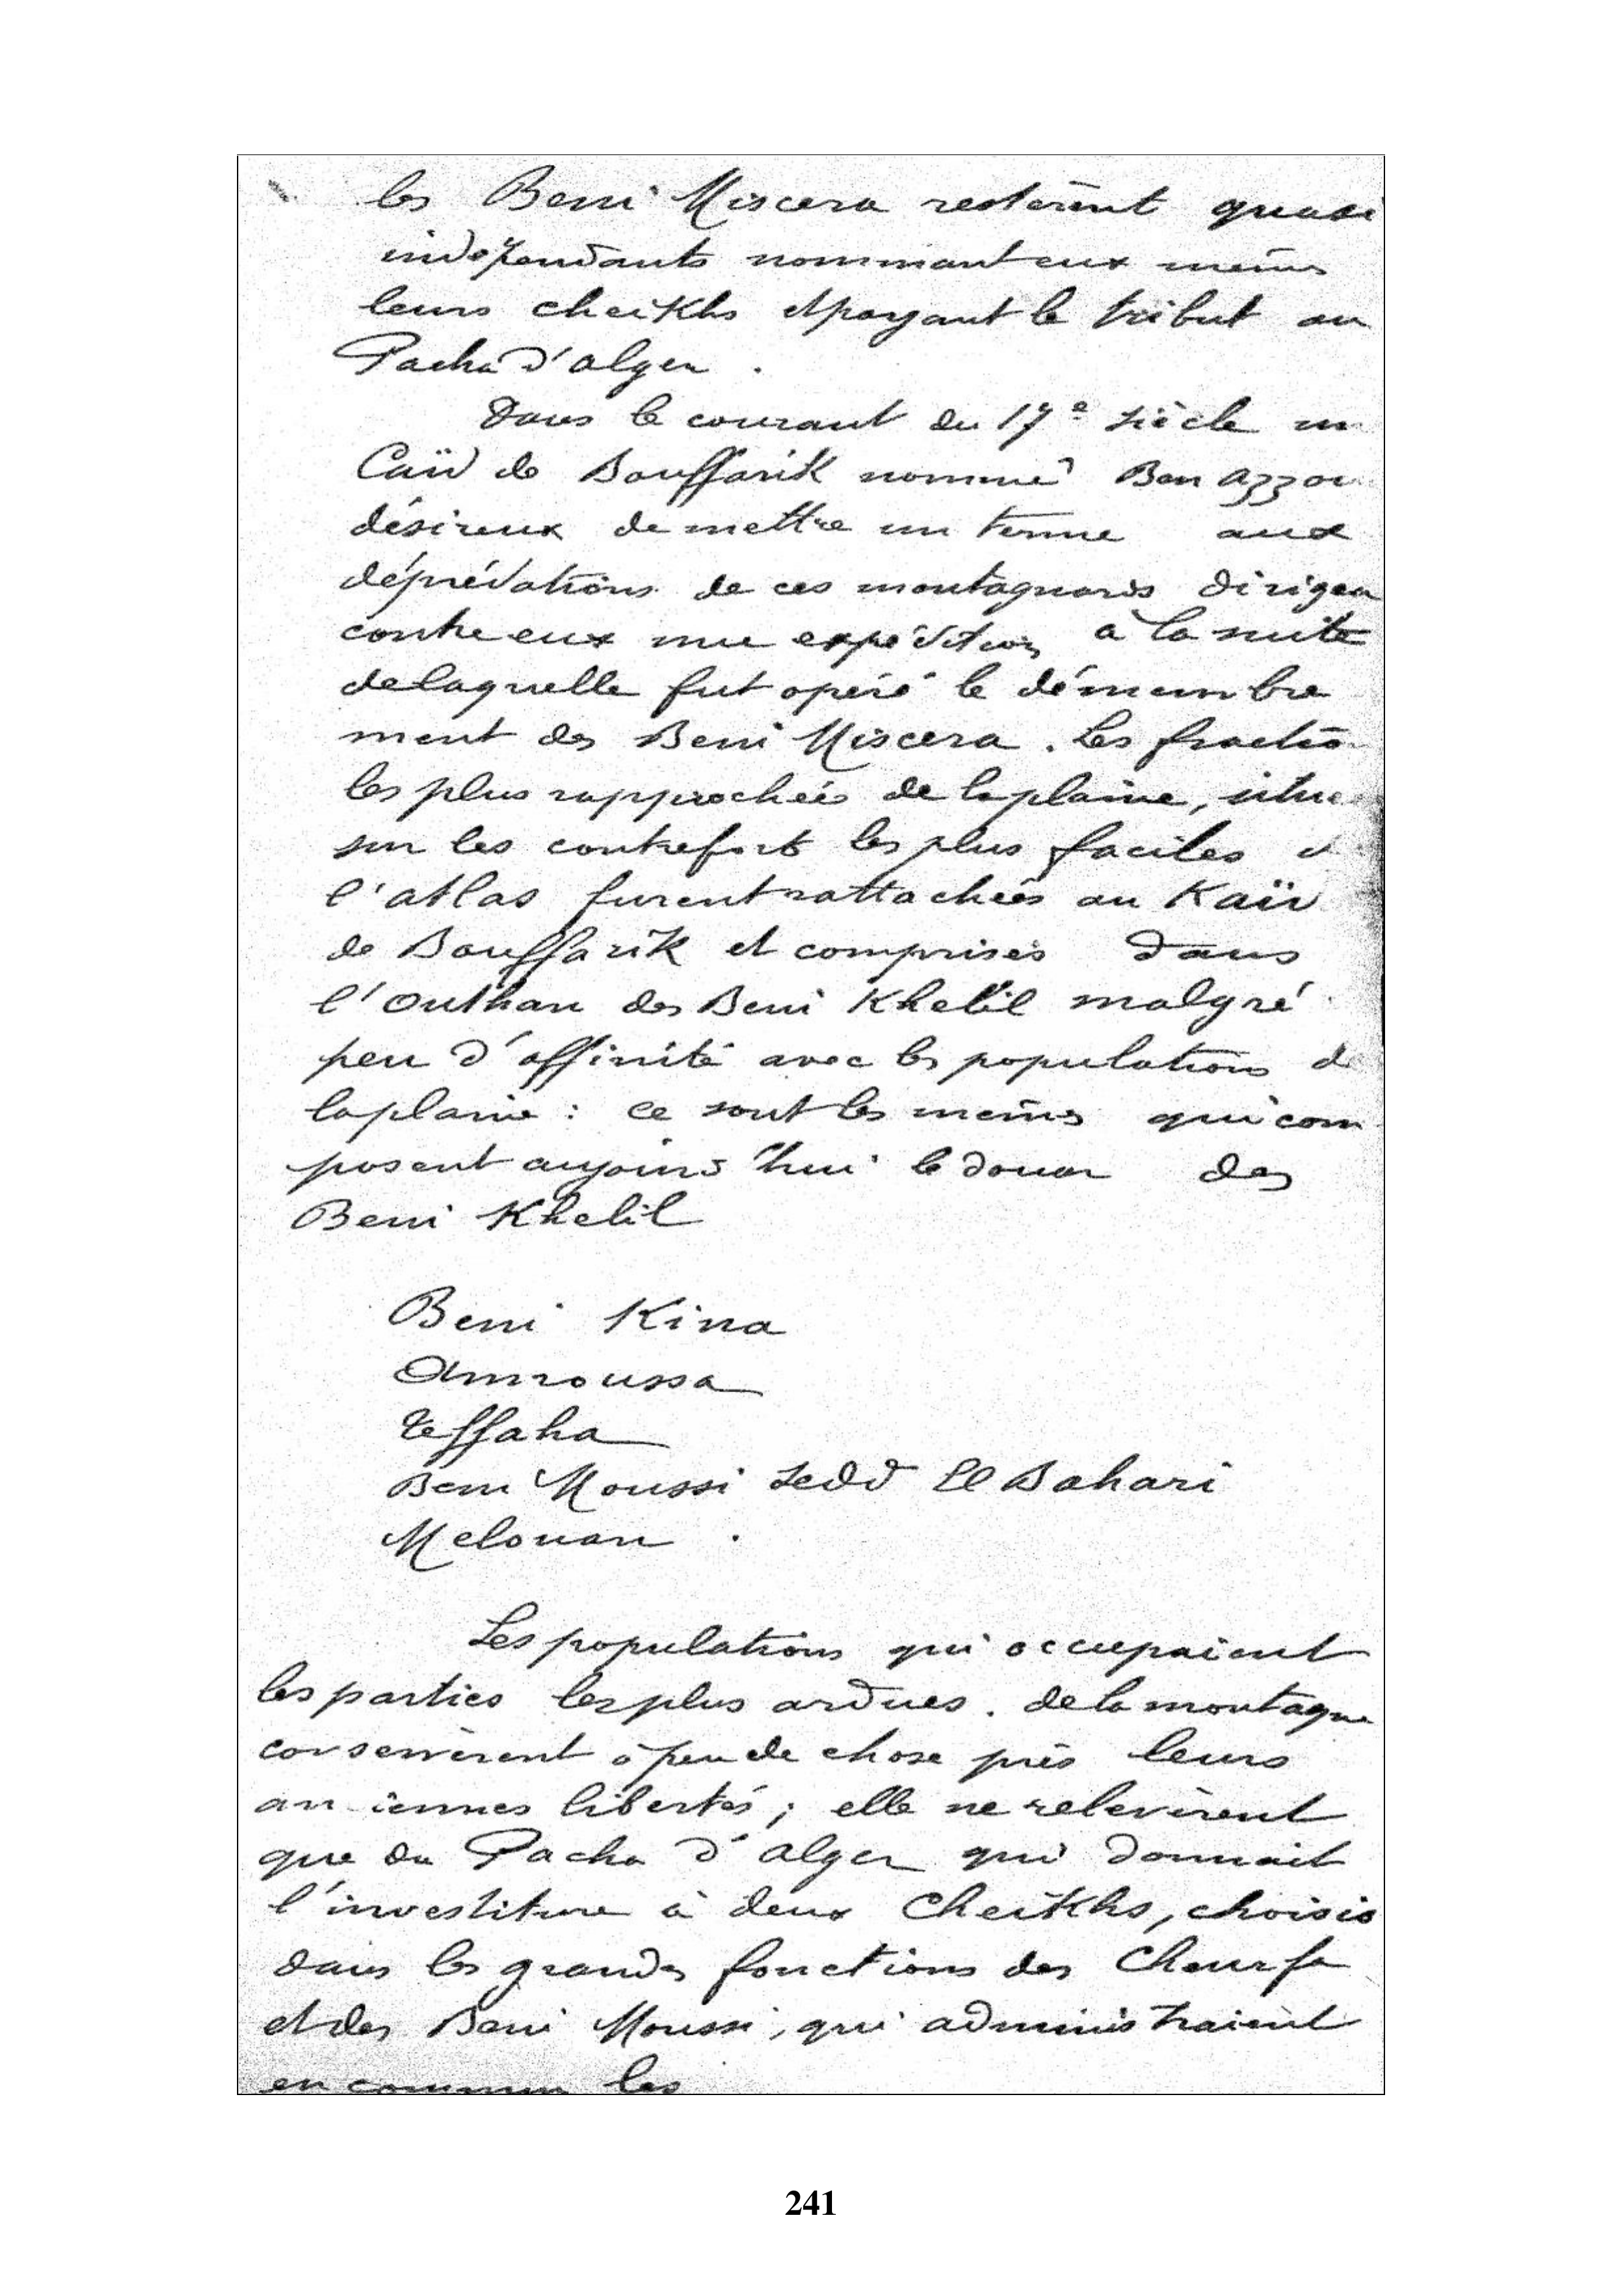 les Beni Miscera restèrent quasi
indépendants nommant eux mêmes
leurs cheikhs et payant le tribut au
Pacha d'alger .
Dans le courant du 17e siècle un
Caïd de Bouffarik nommé Ben
désireux de mettre un terme aux
déprédations de ces montagnards dirigea
contre eux une expédition à la suite
de laquelle fut opéré le démembre
ment des Beni Miscera . Les fractio
les plus rapprochées de la plaine, situe
sur les contreforts les plus faciles d
l'atlas furent rattachées au Kaïd
de Bouffarik et comprises dans
l'Outhan des Beni Khelil malgré
peu d'affinité avec les populations de
la plaine : ce sont les mêmes qui com
posent aujourd'hui le douar des
Beni Khelil
Beni Kina
Amroussa
Teffaha
Beni Moussi Sedd El Bahari
Melouan .
Les populations qui occupaient
les parties les plus ardues . de la montagne
conservèrent à peu de chose près leurs
an iennes libertés ; elle ne relevèrent
que du Pacha d'alger qui donnait
l'investiture à deux Cheikhs, choisis
dans les grandes fonctions des Cheurfa
et des Beni Moussi, qui administraient
en commun les
241